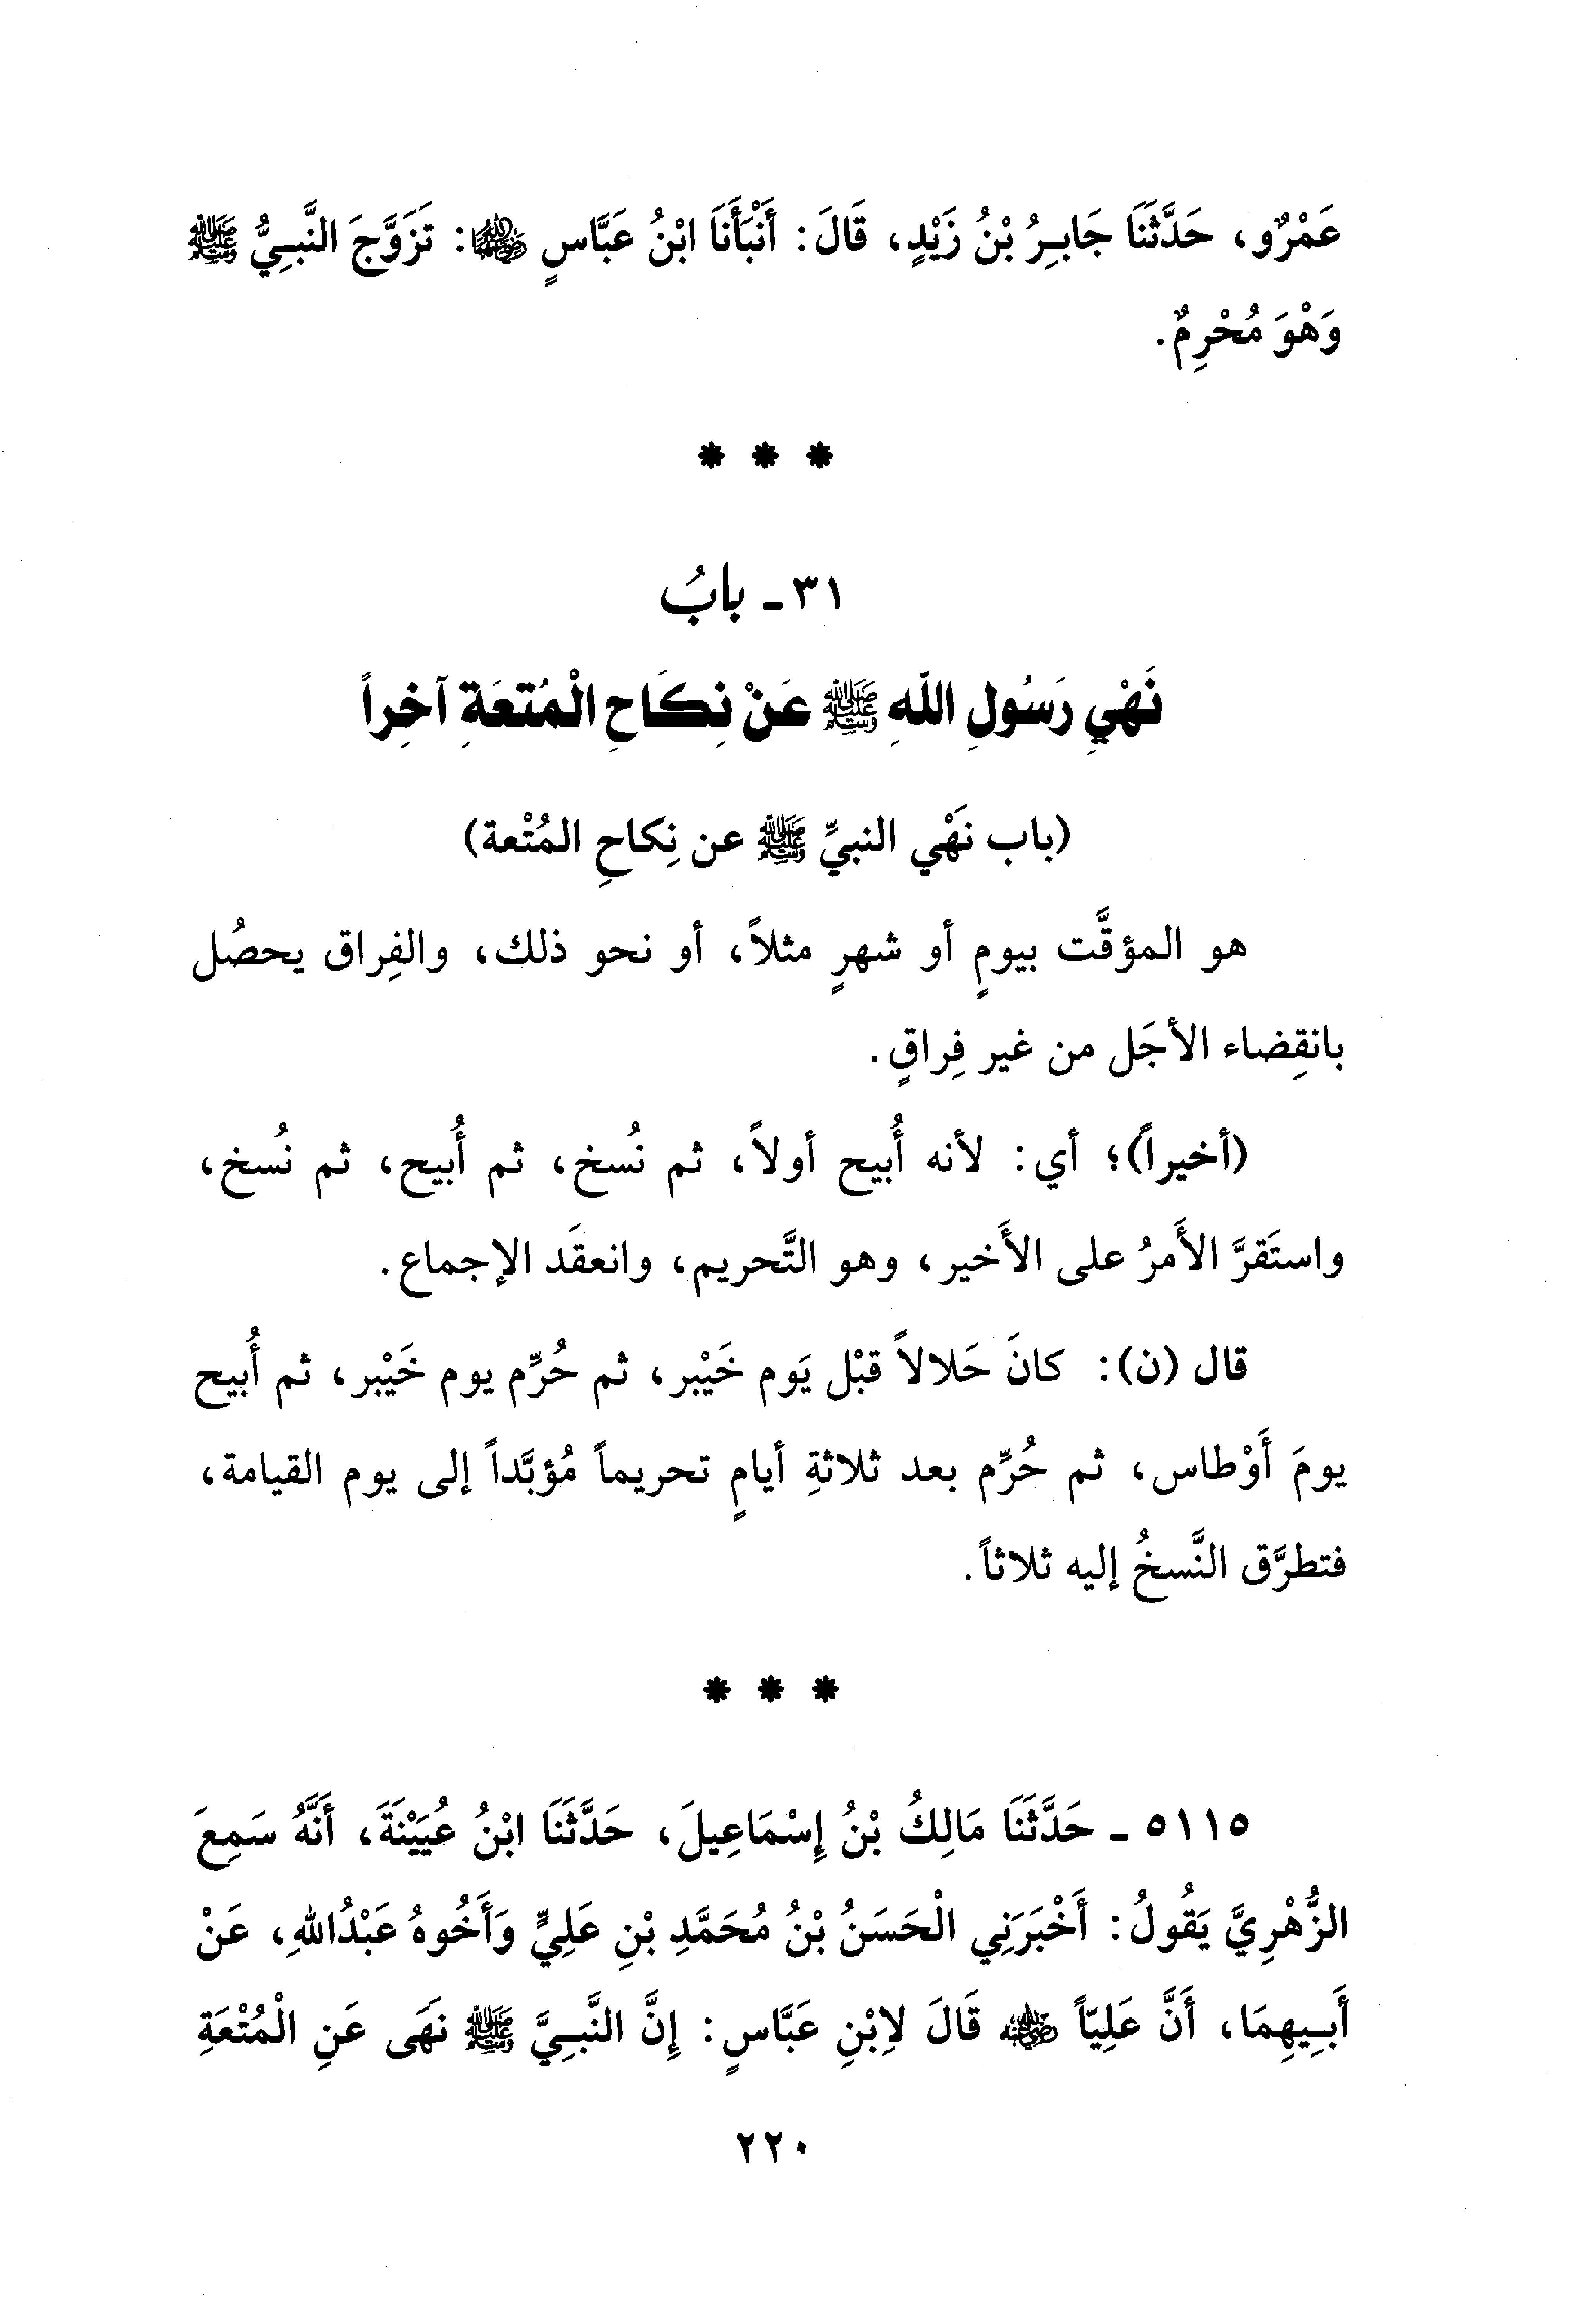 عَمْرٌو، حَدَّثَنَا جَابِرُ بْنُ زَيْدٍ، قَالَ: أَنْبَأَنَا ابْنُ عَبَّاسٍ رضي الله عنهما: تَزَوَّجَ النَّبِيُّ ﷺ
وَهْوَ مُحْرِمٌ.
* * *
٣١ - بابُ
نَهْيِ رَسُولِ اللهِ ﷺ عَنْ نِكَاحِ الْمُتعَةِ آخِراً
(باب نَهْي النبيِّ ﷺ عن نِكاحِ المُتْعة)
هو المؤقَّت بيومٍ أو شهرٍ مثلاً، أو نحو ذلك، والفِراق يحصُل
بانقِضاء الأجَل من غير فِراقٍ.
(أخيراً)؛ أي: لأنه أُبيح أولاً، ثم نُسخ، ثم أُبيح، ثم نُسخ،
واستَقرَّ الأَمرُ على الأَخير، وهو التَّحريم، وانعقَد الإجماع.
قال (ن): كانَ حَلالاً قبْل يَوم خَيْبر، ثم حُرِّم يوم خَيْبر، ثم أُبيح
يومَ أَوْطاس، ثم حُرِّم بعد ثلاثةِ أيامٍ تحريماً مُؤبَّداً إلى يوم القيامة،
فتطرَّق النَّسخُ إليه ثلاثاً.
* * *
٥١١٥ - حَدَّثَنَا مَالِكُ بْنُ إِسْمَاعِيلَ، حَدَّثَنَا ابْنُ عُيَيْنَةَ، أَنَّهُ سَمِعَ
الزُّهْرِيَّ يَقُولُ: أَخْبَرَنِي الْحَسَنُ بْنُ مُحَمَّدِ بْنِ عَلِيٍّ وَأَخُوهُ عَبْدُاللهِ، عَنْ
أَبِيهِمَا، أَنَّ عَلِيّاً رضي الله عنه قَالَ لِابْنِ عَبَّاسٍ: إِنَّ النَّبِيَّ ﷺ نَهَى عَنِ الْمُتْعَةِ
٢٢٠